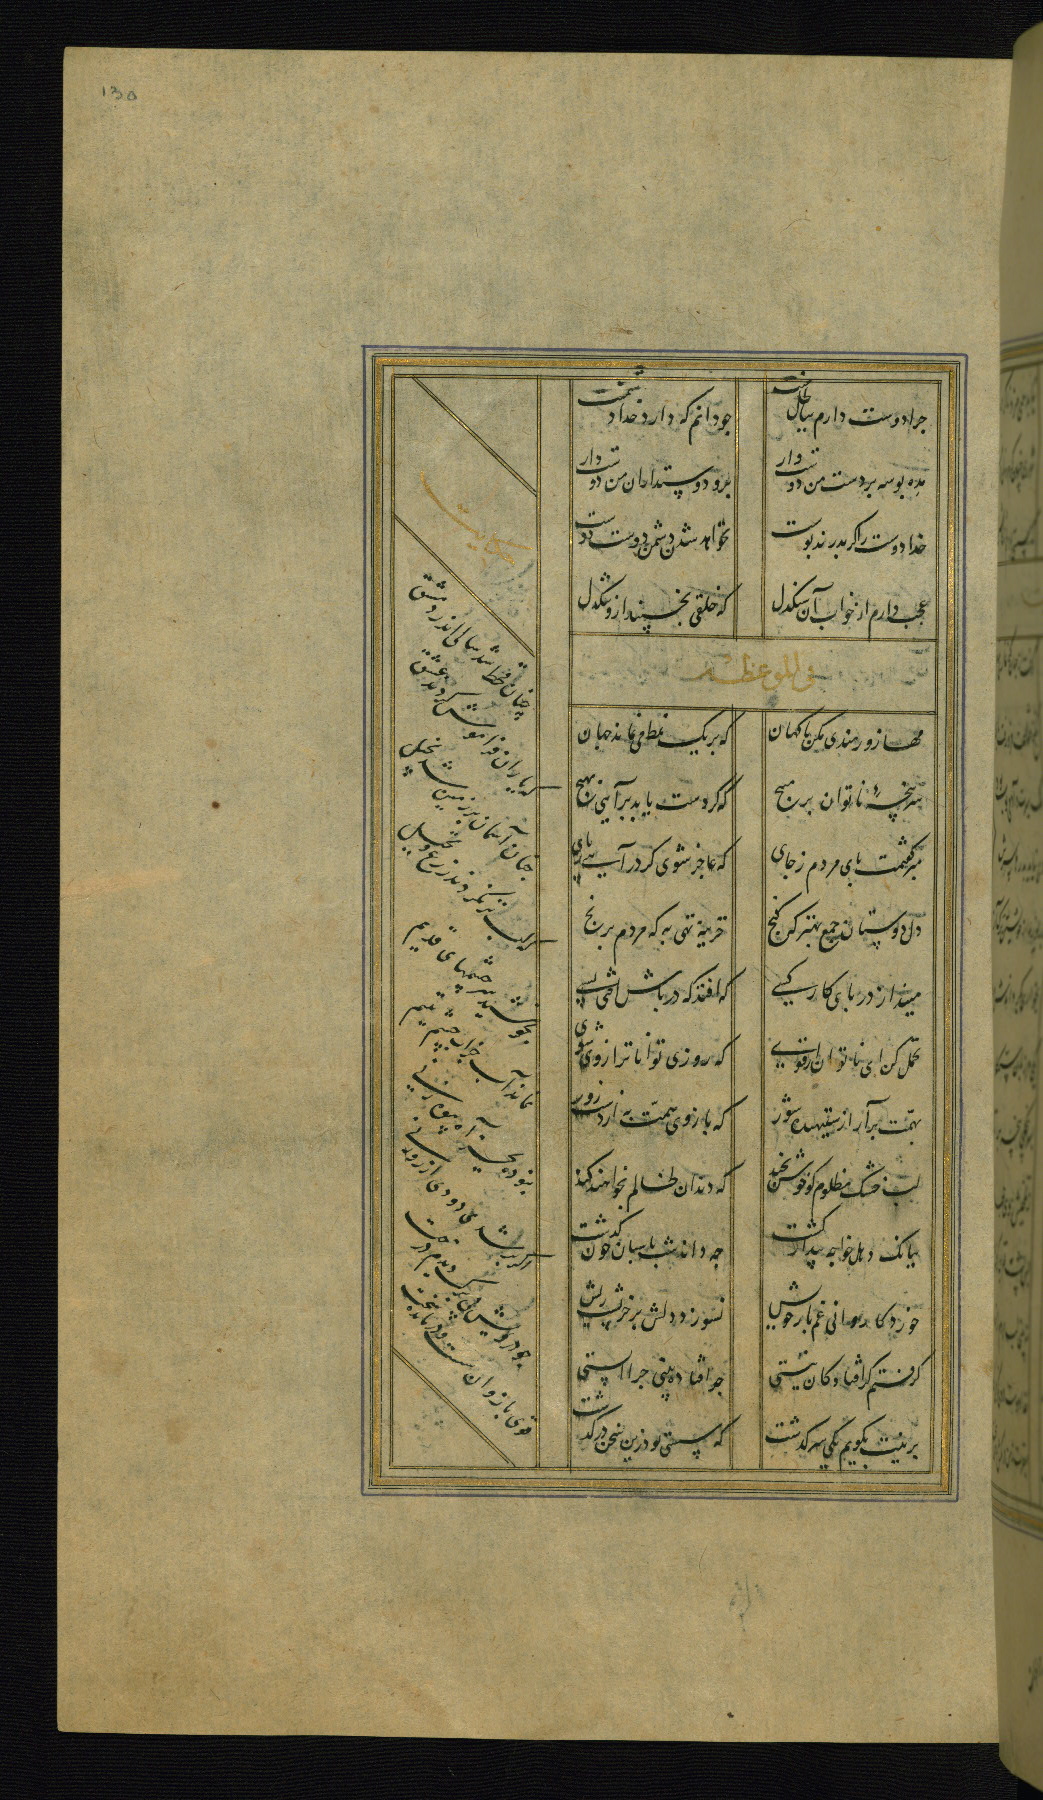 130
چرا دوست دارم بباطل منت
چو دانم که دارد خدا دشمنت
مده بوسه بر دست من دوستوار
برو دوستداران من دوست دار
خدا دوست را گر بدرند پوست
نخواهد شدن دشمن دوست دوست
عجب دارم از خواب آن سنگدل
که خلقی بخسپند ازو تنگدل
فی الموعظه
مها زورمندی مکن با کهان
که بر یک نمط می نماند جهان
سر پنجه ناتوان بر مپیچ
که گر دست یابد برآیی بهیچ
مبر گفتمت پای مردم ز جای
که عاجز شوی گر درآیی ز پای
دل دوستان جمع بهتر که گنج
خزینه تهی به که مردم برنج
مینداز در پای کار کسی
که افتد که در پاش افتی بسی
تحمل کن ای ناتوان از قوی
که روزی تواناتر از وی شوی
بهمت برآر از ستیهنده شور
که بازوی همت به از دست زور
لب خشک مظلوم کو خوش بخند
که دندان ظالم بخواهند کند
ببانگ دهل خواجه بیدار گشت
چه داند شب پاسبان چون گذشت
خورد کاروانی غم بار خویش
نسوزد دلش بر خر پشت ریش
گرفتم کز افتادگان نیستی
چو افتاده بینی چرا ایستی
برینت بگویم یکی سرگذشت
که سستی بود زین سخن درگذشت
حکایت
چنان قحط شد سالی اندر دمشق
که یاران فراموش کردند عشق
چنان آسمان بر زمین شد بخیل
که لب تر نکردند زرع و نخیل
بخوشید سرچشمهای قدیم
نماند آب جز آب چشم یتیم
نبودی بجز آه بیوه زنی
اگر بر شدی دودی از روزنی
چو درویش بی برگ دیدم درخت
قوی بازوان سست و درمانده سخت